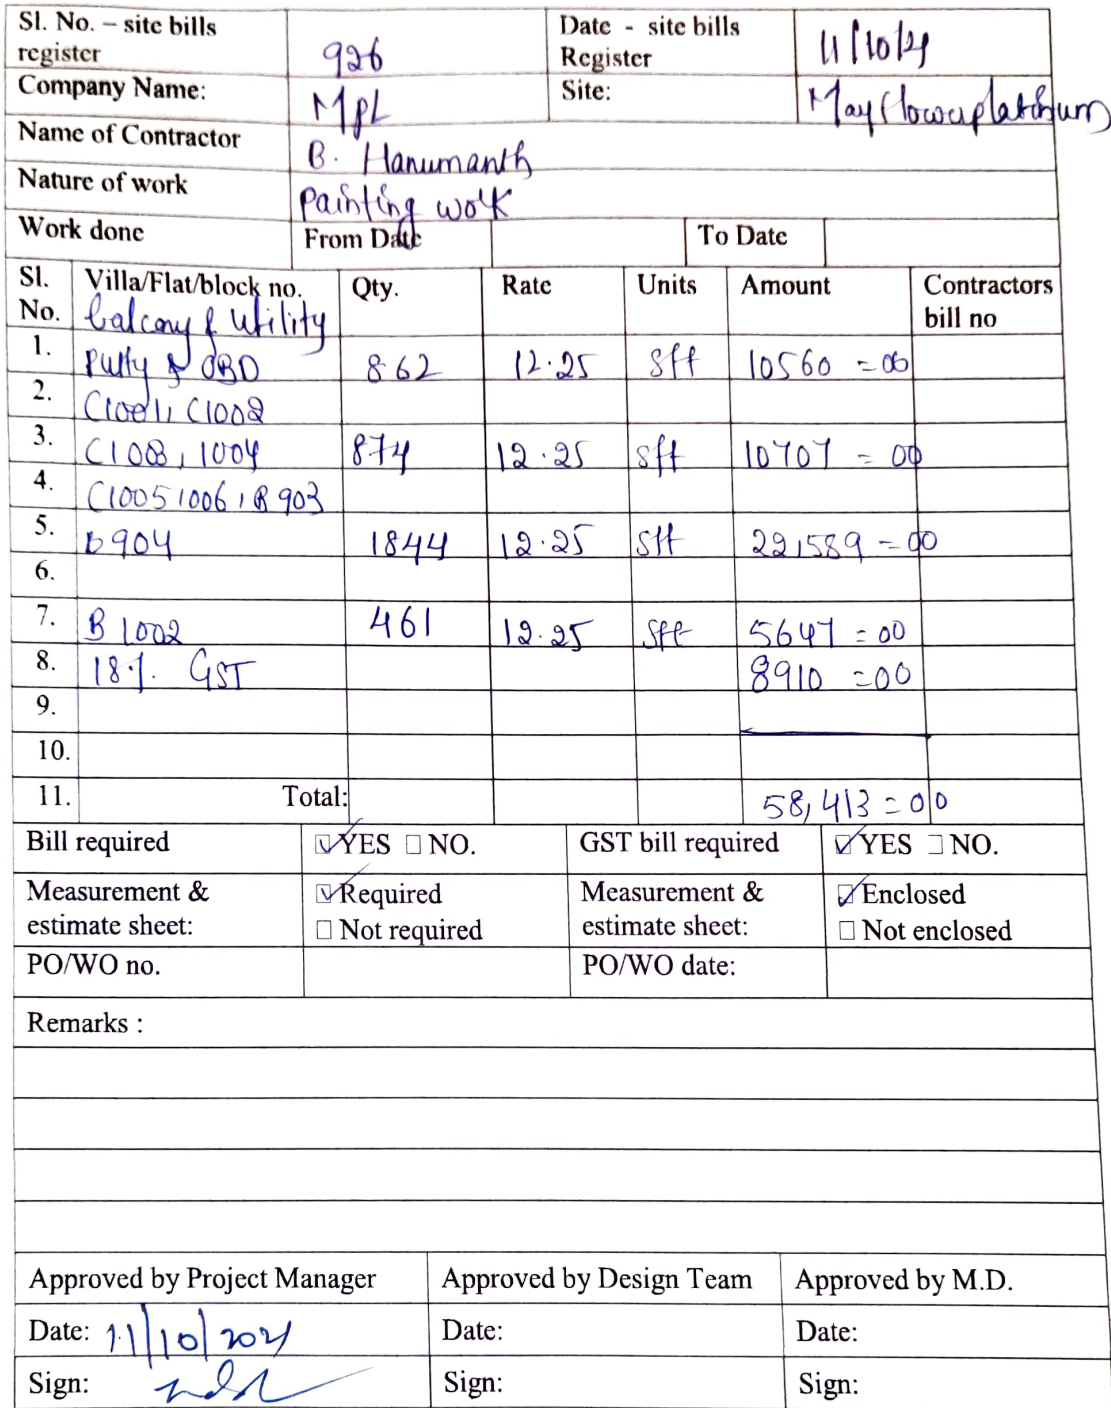 Sl. No. – site bills register 926 Date - site bills Register 11/10/21
Company Name: MPL Site: Mayflower platinum
Name of Contractor B. Hanumanth
Nature of work Painting work
Work done From Date To Date
Sl. No. Villa/Flat/block no. Qty. Rate Units Amount Contractors bill no
balcony & Utility
1. Putty & OBD 862 12.25 sft 10560 =00
2. C1001, C1002
3. C1003, 1004 874 12.25 sft 10707 = 00
4. C1005 1006, B 903
5. B904 1844 12.25 sft 22,589 = 00
6.
7. B 1002 461 12.25 sft 5647 = 00
8. 18%. GST 8910 =00
9.
10.
11. Total: 58,413 = 00
Bill required YES NO. GST bill required YES NO.
Measurement & estimate sheet: Required Measurement & estimate sheet: Enclosed
Not required Not enclosed
PO/WO no. PO/WO date:
Remarks :
Approved by Project Manager Approved by Design Team Approved by M.D.
Date: 11/10/2021 Date: Date:
Sign: Sign: Sign: